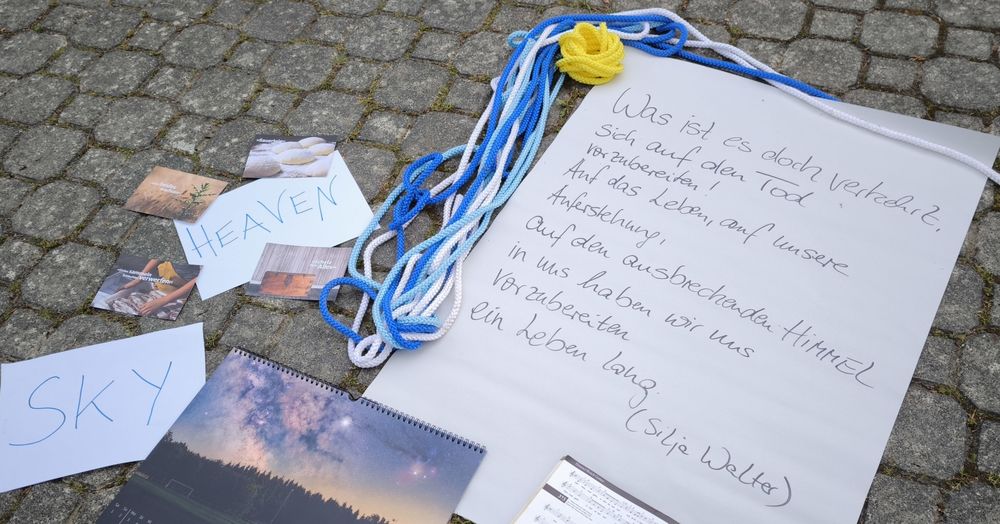 Was ist es doch verkehrt,
sich auf den Tod
vorzubereiten!
Auf das Leben, auf unsere
Auferstehung,
auf den ausbrechenden HIMMEL
in uns haben wir uns
vorzubereiten
ein Leben lang.
(Silja Walter)
HEAVEN
SKY